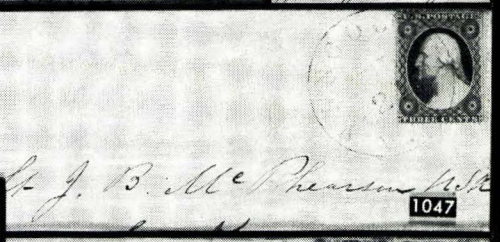 U.S. POSTAGE
THREE CENTS
Lt J. B. McPhearson U.S.
1047